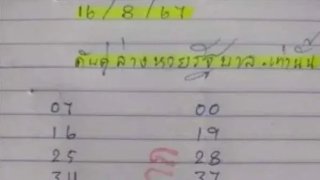 16/8/67
คันคู่ล่างหวยรัฐบาล.เท่านั้น
07 00
16 19
25 28
34 37